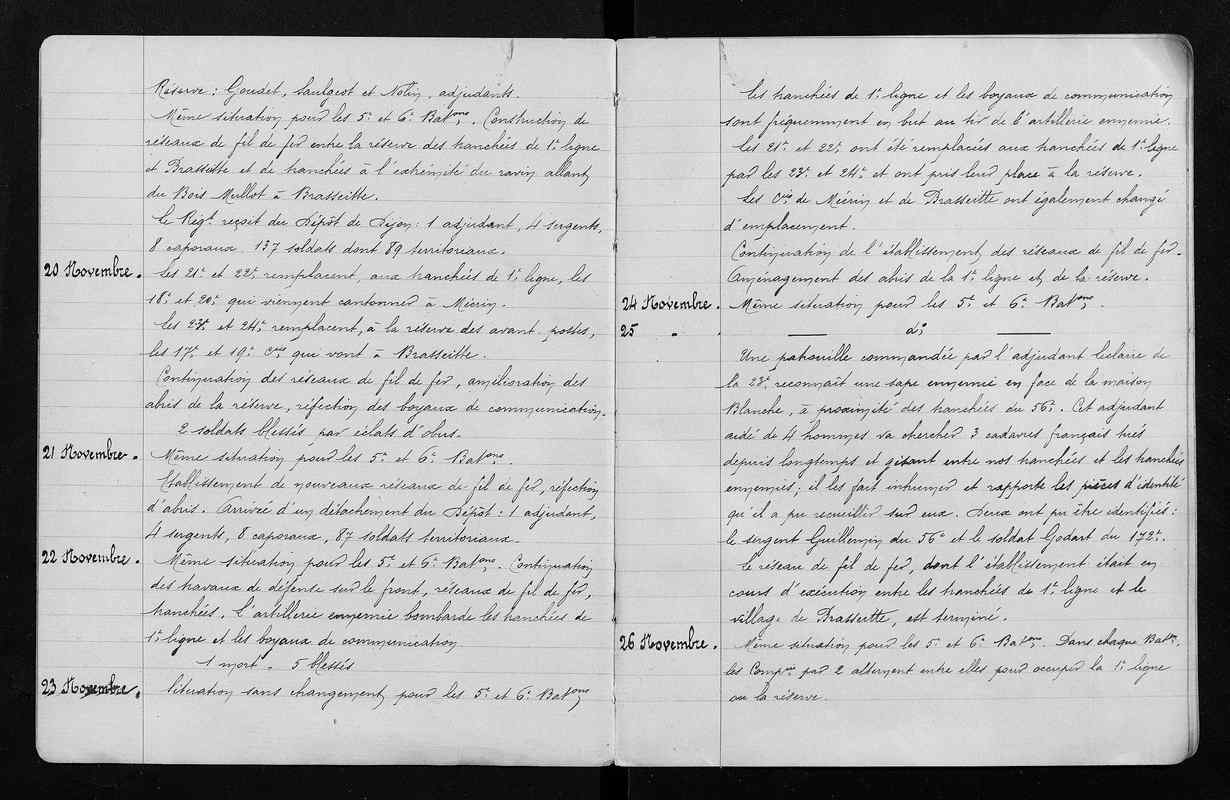 Réserve : Goudet, Saulgeot et Notin, adjudants.
Même situation pour les 5e et 6e Batons. Construction de
réseaux de fil de fer entre la réserve des tranchées de 1e ligne
et Brasseitte et de tranchées à l'extrémité du ravin allant
du Bois Mullot à Brasseitte.
Le Régt reçoit du Dépôt de Dijon : 1 adjudant, 4 sergents,
8 caporaux, 137 soldats dont 89 territoriaux.
20 Novembre. Les 21e et 22e remplacent, aux tranchées de 1e ligne, les
18e et 20e qui viennent cantonner à Mécrin.
Les 23e et 24e remplacent, à la réserve des avant-postes,
les 17e et 19e Cies qui vont à Brasseitte.
Continuation des réseaux de fil de fer, amélioration des
abris de la réserve, réfection des boyaux de communication.
2 soldats blessés par éclats d'obus.
21 Novembre. Même situation pour les 5e et 6e Batons.
Etablissement de nouveaux réseaux de fil de fer, réfection
d'abris. Arrivée d'un détachement du Dépôt : 1 adjudant,
4 sergents, 8 caporaux, 87 soldats territoriaux.
22 Novembre. Même situation pour les 5e et 6e Batons. Continuation
des travaux de défense sur le front, réseaux de fil de fer,
tranchées. L'artillerie ennemie bombarde les tranchées de
1e ligne et les boyaux de communication
1 mort - 5 blessés
23 Novembre. Situation sans changement pour les 5e et 6e Batons
Les tranchées de 1e ligne et les boyaux de communication
sont fréquemment en but au tir de l'artillerie ennemie.
Les 21e et 22e ont été remplacées aux tranchées de 1e ligne
par les 23e et 24e et ont pris leur place à la réserve.
Les Cies de Mécrin et de Brasseitte ont également changé
d'emplacement.
Continuation de l'établissement des réseaux de fil de fer.
Aménagement des abris de la 1e ligne et de la réserve.
24 Novembre. Même situation pour les 5e et 6e Batons.
25 - . — do —
Une patrouille commandée par l'adjudant Leclaire de
la 23e reconnaît une sape ennemie en face de la maison
Blanche, à proximité des tranchées du 56e. Cet adjudant
aidé de 4 hommes va chercher 3 cadavres français tués
depuis longtemps et gisant entre nos tranchées et les tranchées
ennemies ; il les fait inhumer et rapporte les pièces d'identité
qu'il a pu recueillir sur eux. Deux ont pu être identifiés :
le sergent Guillemin du 56e et le soldat Godart du 172e.
Le réseau de fil de fer, dont l'établissement était en
cours d'exécution entre les tranchées de 1e ligne et le
village de Brasseitte, est terminé.
26 Novembre. Même situation pour les 5e et 6e Batons. Dans chaque Baton,
les Compies par 2 alternent entre elles pour occuper la 1e ligne
ou la réserve.